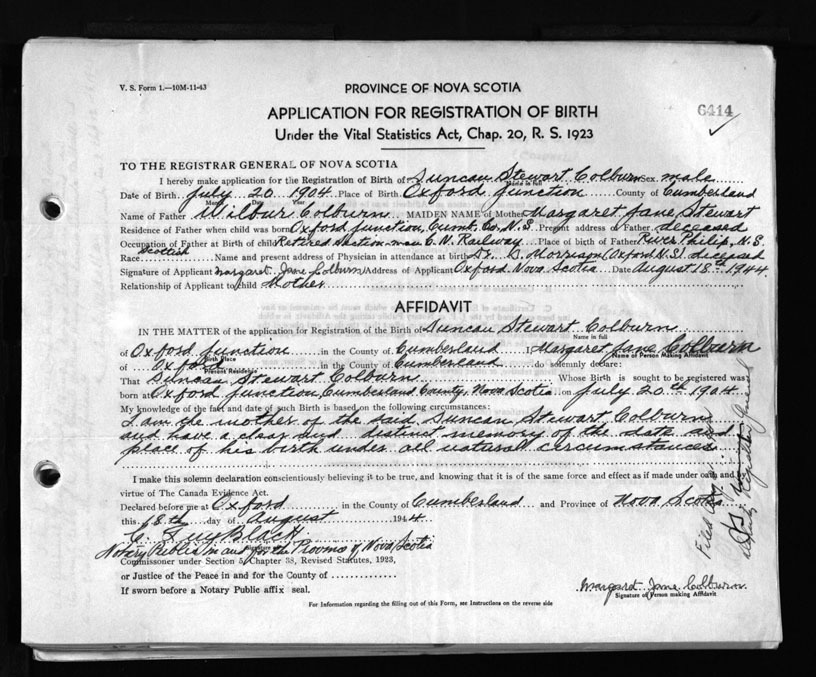 V. S. Form 1.—10M-11-43
PROVINCE OF NOVA SCOTIA
6414
APPLICATION FOR REGISTRATION OF BIRTH
Under the Vital Statistics Act, Chap. 20, R. S. 1923
TO THE REGISTRAR GENERAL OF NOVA SCOTIA
I hereby make application for the Registration of Birth of Duncan Stewart Colburn Sex male
Name in full
Date of Birth July 20 1904 Place of Birth Oxford Junction County of Cumberland
Month Day Year
Name of Father Wilbur Colburn MAIDEN NAME of Mother Margaret Jane Stewart
Residence of Father when child was born Oxford Junction, Cumb. Co. N.S. Present address of Father deceased
Occupation of Father at Birth of child Retired Section-man C. N. Railway Place of Birth of Father River Philip, N.S.
Race Scottish Name and present address of Physician in attendance at birth Dr. D. Morrison (Oxford N.S.) deceased
Signature of Applicant Margaret Jane Colburn Address of Applicant Oxford Nova Scotia Date August 18th 1944
Relationship of Applicant to child Mother
AFFIDAVIT
IN THE MATTER of the application for Registration of the Birth of Duncan Stewart Colburn
Name in full
of Oxford Junction in the County of Cumberland I, Margaret Jane Colburn
Birth Place Name of Person Making Affidavit
of Oxford in the County of Cumberland do solemnly declare:
Present Residence
That Duncan Stewart Colburn Whose Birth is sought to be registered was
born at Oxford Junction, Cumberland County, Nova Scotia on July 20th 1904
My knowledge of the fact and date of such Birth is based on the following circumstances:
I am the mother of the said Duncan Stewart Colburn
and have a clear and distinct memory of the date and
place of his birth under all natural circumstances
I make this solemn declaration conscientiously believing it to be true, and knowing that it is of the same force and effect as if made under oath and by
virtue of The Canada Evidence Act.
Declared before me at Oxford in the County of Cumberland and Province of Nova Scotia
this 18th day of August 1944
C. Guy Black
Notary Public in and for the Province of Nova Scotia
Commissioner under Section 5 Chapter 38, Revised Statutes, 1923,
or Justice of the Peace in and for the County of
If sworn before a Notary Public affix seal.
Margaret Jane Colburn
Signature of Person making Affidavit
For Information regarding the filling out of this Form, see Instructions on the reverse side
Filed
Deputy Registrar General